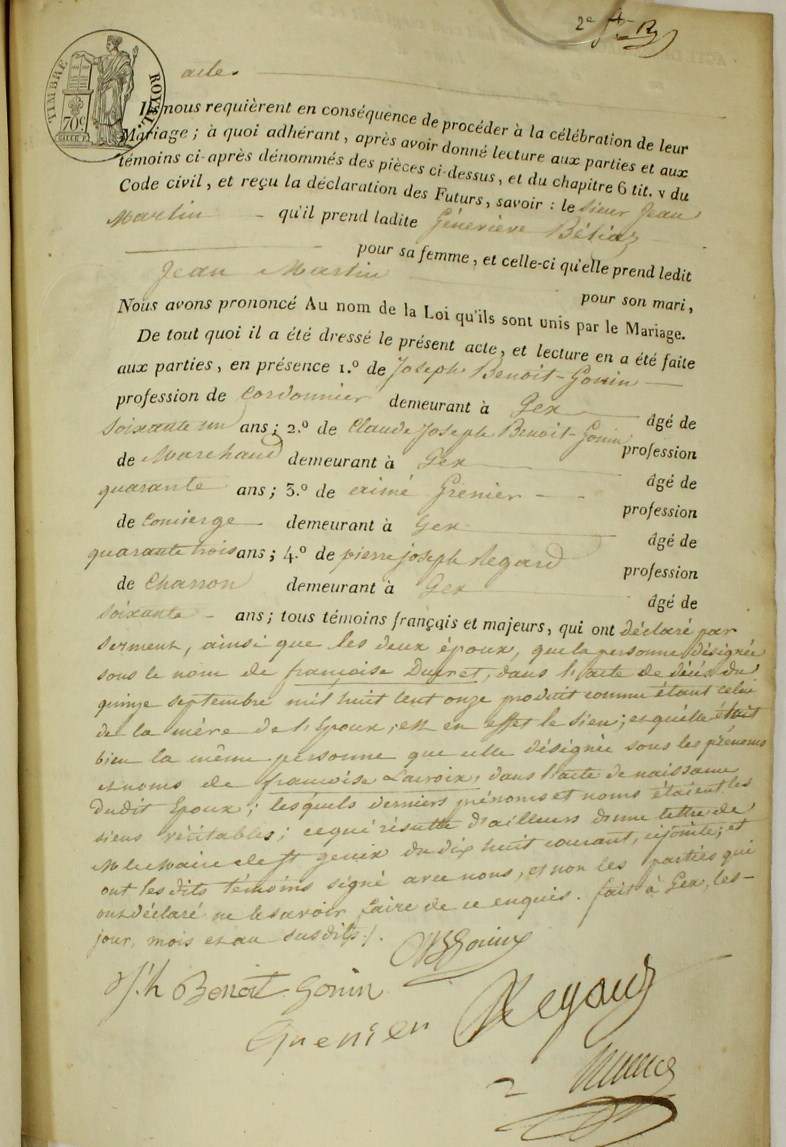 2e ft R
TIMBRE ROYAL
70c
acte.
Ils nous requièrent en conséquence de procéder à la célébration de leur
Mariage ; à quoi adhérant, après avoir donné lecture aux parties et aux
témoins ci-après dénommés des pièces ci-dessus, et du chapitre 6 tit. v du
Code civil, et reçu la déclaration des Futurs, savoir : le sieur Jean
Martin qu'il prend ladite Géneviève Béliaz
pour sa femme, et celle-ci qu'elle prend ledit
Jean Martin pour son mari,
Nous avons prononcé Au nom de la Loi qu'ils sont unis par le Mariage.
De tout quoi il a été dressé le présent acte, et lecture en a été faite
aux parties, en présence 1.º de Joseph Benoit-Gonin
profession de Cordonnier demeurant à Gex âgé de
soixante un ans ; 2.º de Claude Joseph Benoit-Gonin profession
de Marchand demeurant à Gex âgé de
quarante ans ; 3.º de aimé Grénier profession
de Concierge demeurant à Gex âgé de
quarante trois ans ; 4.º de pierre joseph Regard profession
de Charron demeurant à Gex âgé de
soixante ans ; tous témoins français et majeurs, qui ont déclaré par
serment, ainsi que les deux époux, que la personne désignée
sous le nom de françoise Ducret, dans l'acte de décès du
quinze septembre mil huit cent onze produit comme étant celui
de la mère de l'Epoux, est en effet le sien ; et qu'elle était
bien la même personne que celle désignée sous les prénoms
et noms de françoise Lacroix, dans l'acte de naissance
dudit Epoux ; lesquels derniers prénoms et noms étaient les
siens véritables ; ce qui résulte d'ailleurs d'une lettre de
M. le Maire de St genix du dix huit courant, ci jointe ; et
ont les dits témoins signé avec nous, et non les parties qui
ont déclaré ne le savoir faire de ce enquis. fait à Gex, les
jour, mois et an susdits /.
Benoit Gonin
Grenier Regard